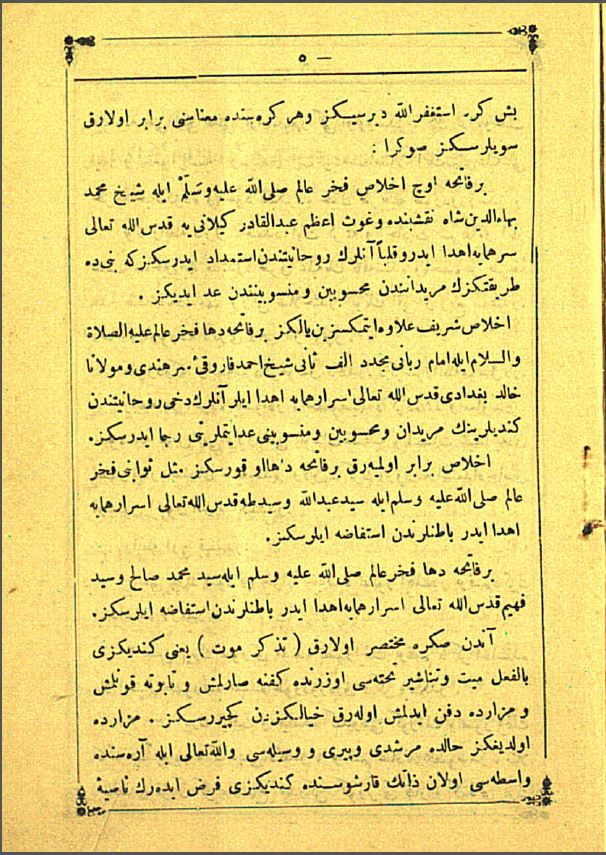 — ٥
بش كره استغفر الله ديرسيكز وهر كره‌سنده معناسنى برابر اولارق
سويلرسكز صوكرا :
برفاتحه اوچ اخلاص فخر عالم صلى الله عليه وسلم ايله شيخ محمد
بهاء الدين شاه نقشبنده وغوث اعظم عبدالقادر كيلانى يه قدس الله تعالى
سرهمايه اهدا ايدر وقلباً آنلرك روحانيتندن استمداد ايدرسكز كه بنى ده
طريقتكزك مريدانندن محسوبين ومنسوبينندن عد ايديكز .
اخلاص شريف علاوه ايتمكسزين يالكز برفاتحه دها فخر عالم عليه الصلاة
والسلام ايله امام ربانى مجدد الف ثانى شيخ احمد فاروقئ سرهندى ومولانا
خالد بغدادى قدس الله تعالى اسرارهمايه اهدا ايلر آنلرك دخى روحانيتندن
كنديلرينك مريدان ومحسوبين ومنسوبينى عد ايتملرينى رجا ايدرسكز.
اخلاص برابر اولميه‌رق برفاتحه دها او قورسكز . مثل ثوابنى فخر
عالم صلى الله عليه وسلم ايله سيد عبدالله وسيد طه قدس الله تعالى اسرارهمايه
اهدا ايدر باطنلرندن استفاضه ايلرسكز.
برفاتحه دها فخر عالم صلى الله عليه وسلم ايله سيد محمد صالح وسيد
فهيم قدس الله تعالى اسرارهمايه اهدا ايدر باطنلرندن استفاضه ايلرسكز.
آندن صكره مختصر اولارق ( تذكر موت ) يعنى كنديكزى
بالفعل ميت وتناشير تخته‌سى اوزرنده كفنه صارلمش و تابوته قونلمش
و مزارده دفن ايدلمش اوله‌رق خيالكزدن كچيررسكز . مزارده
اولديغكز حالده مرشدى وپيرى و وسيله‌سى والله تعالى ايله آره‌سنده
واسطه‌سى اولان ذاتك قارشوسنده كنديكزى فرض ايده‌رك ناصية